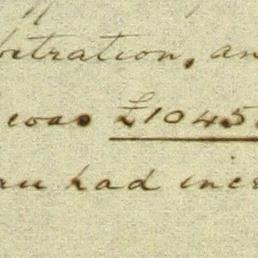 bitration, an
was £1045
au had incr